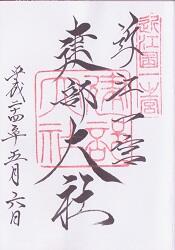 近江國一宮
近江一宮
建部大社
平成二十四年五月六日